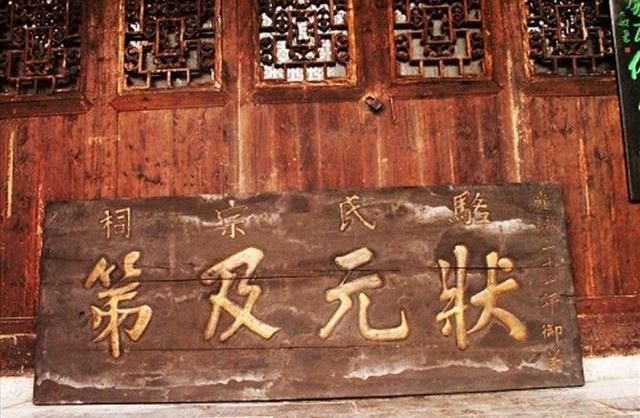 駱氏宗祠
狀元及第
光緒二十一年御筆